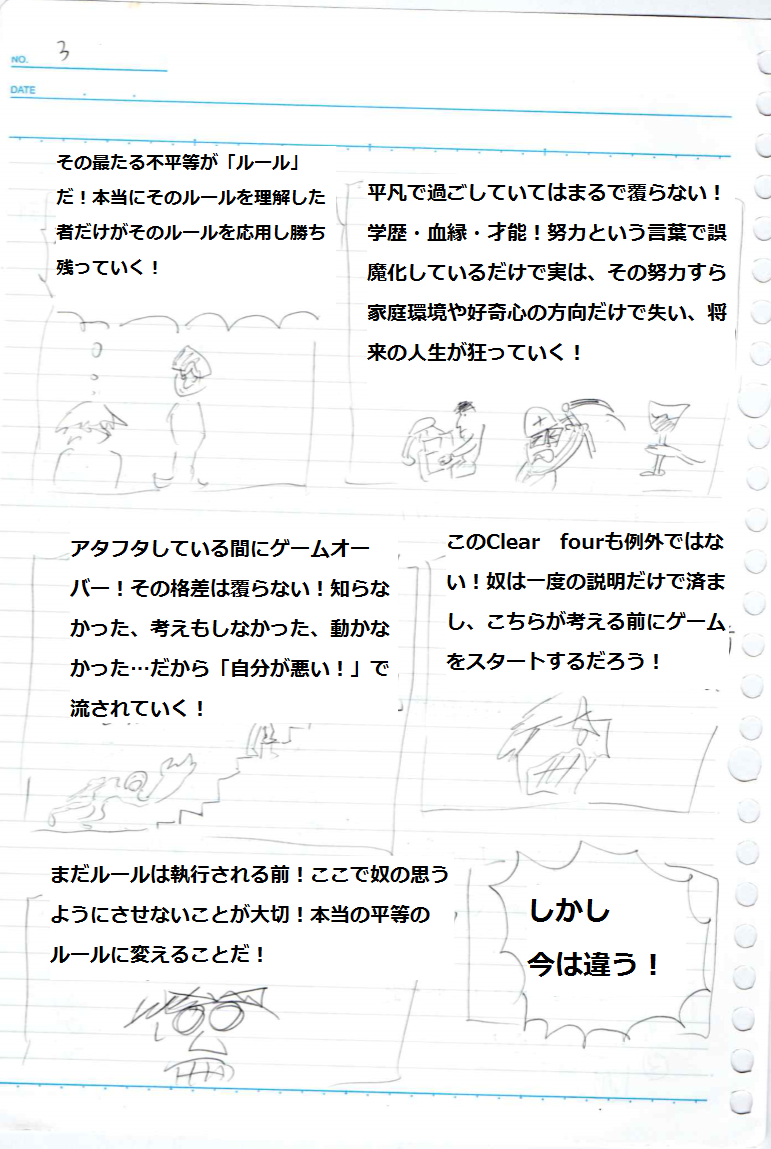 NO. 3
DATE
その最たる不平等が「ルール」
だ！本当にそのルールを理解した
者だけがそのルールを応用し勝ち
残っていく！
平凡で過ごしていてはまるで覆らない！
学歴・血縁・才能！努力という言葉で誤
魔化しているだけで実は、その努力すら
家庭環境や好奇心の方向だけで失い、将
来の人生が狂っていく！
アタフタしている間にゲームオー
バー！その格差は覆らない！知らな
かった、考えもしなかった、動かな
かった…だから「自分が悪い！」で
流されていく！
このClear　fourも例外ではな
い！奴は一度の説明だけで済ま
し、こちらが考える前にゲーム
をスタートするだろう！
まだルールは執行される前！ここで奴の思う
ようにさせないことが大切！本当の平等の
ルールに変えることだ！
しかし
今は違う！